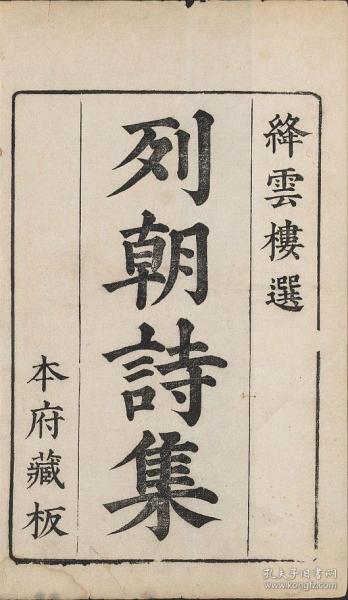 絳雲樓選
列朝詩集
本府藏板
孔夫子旧书网